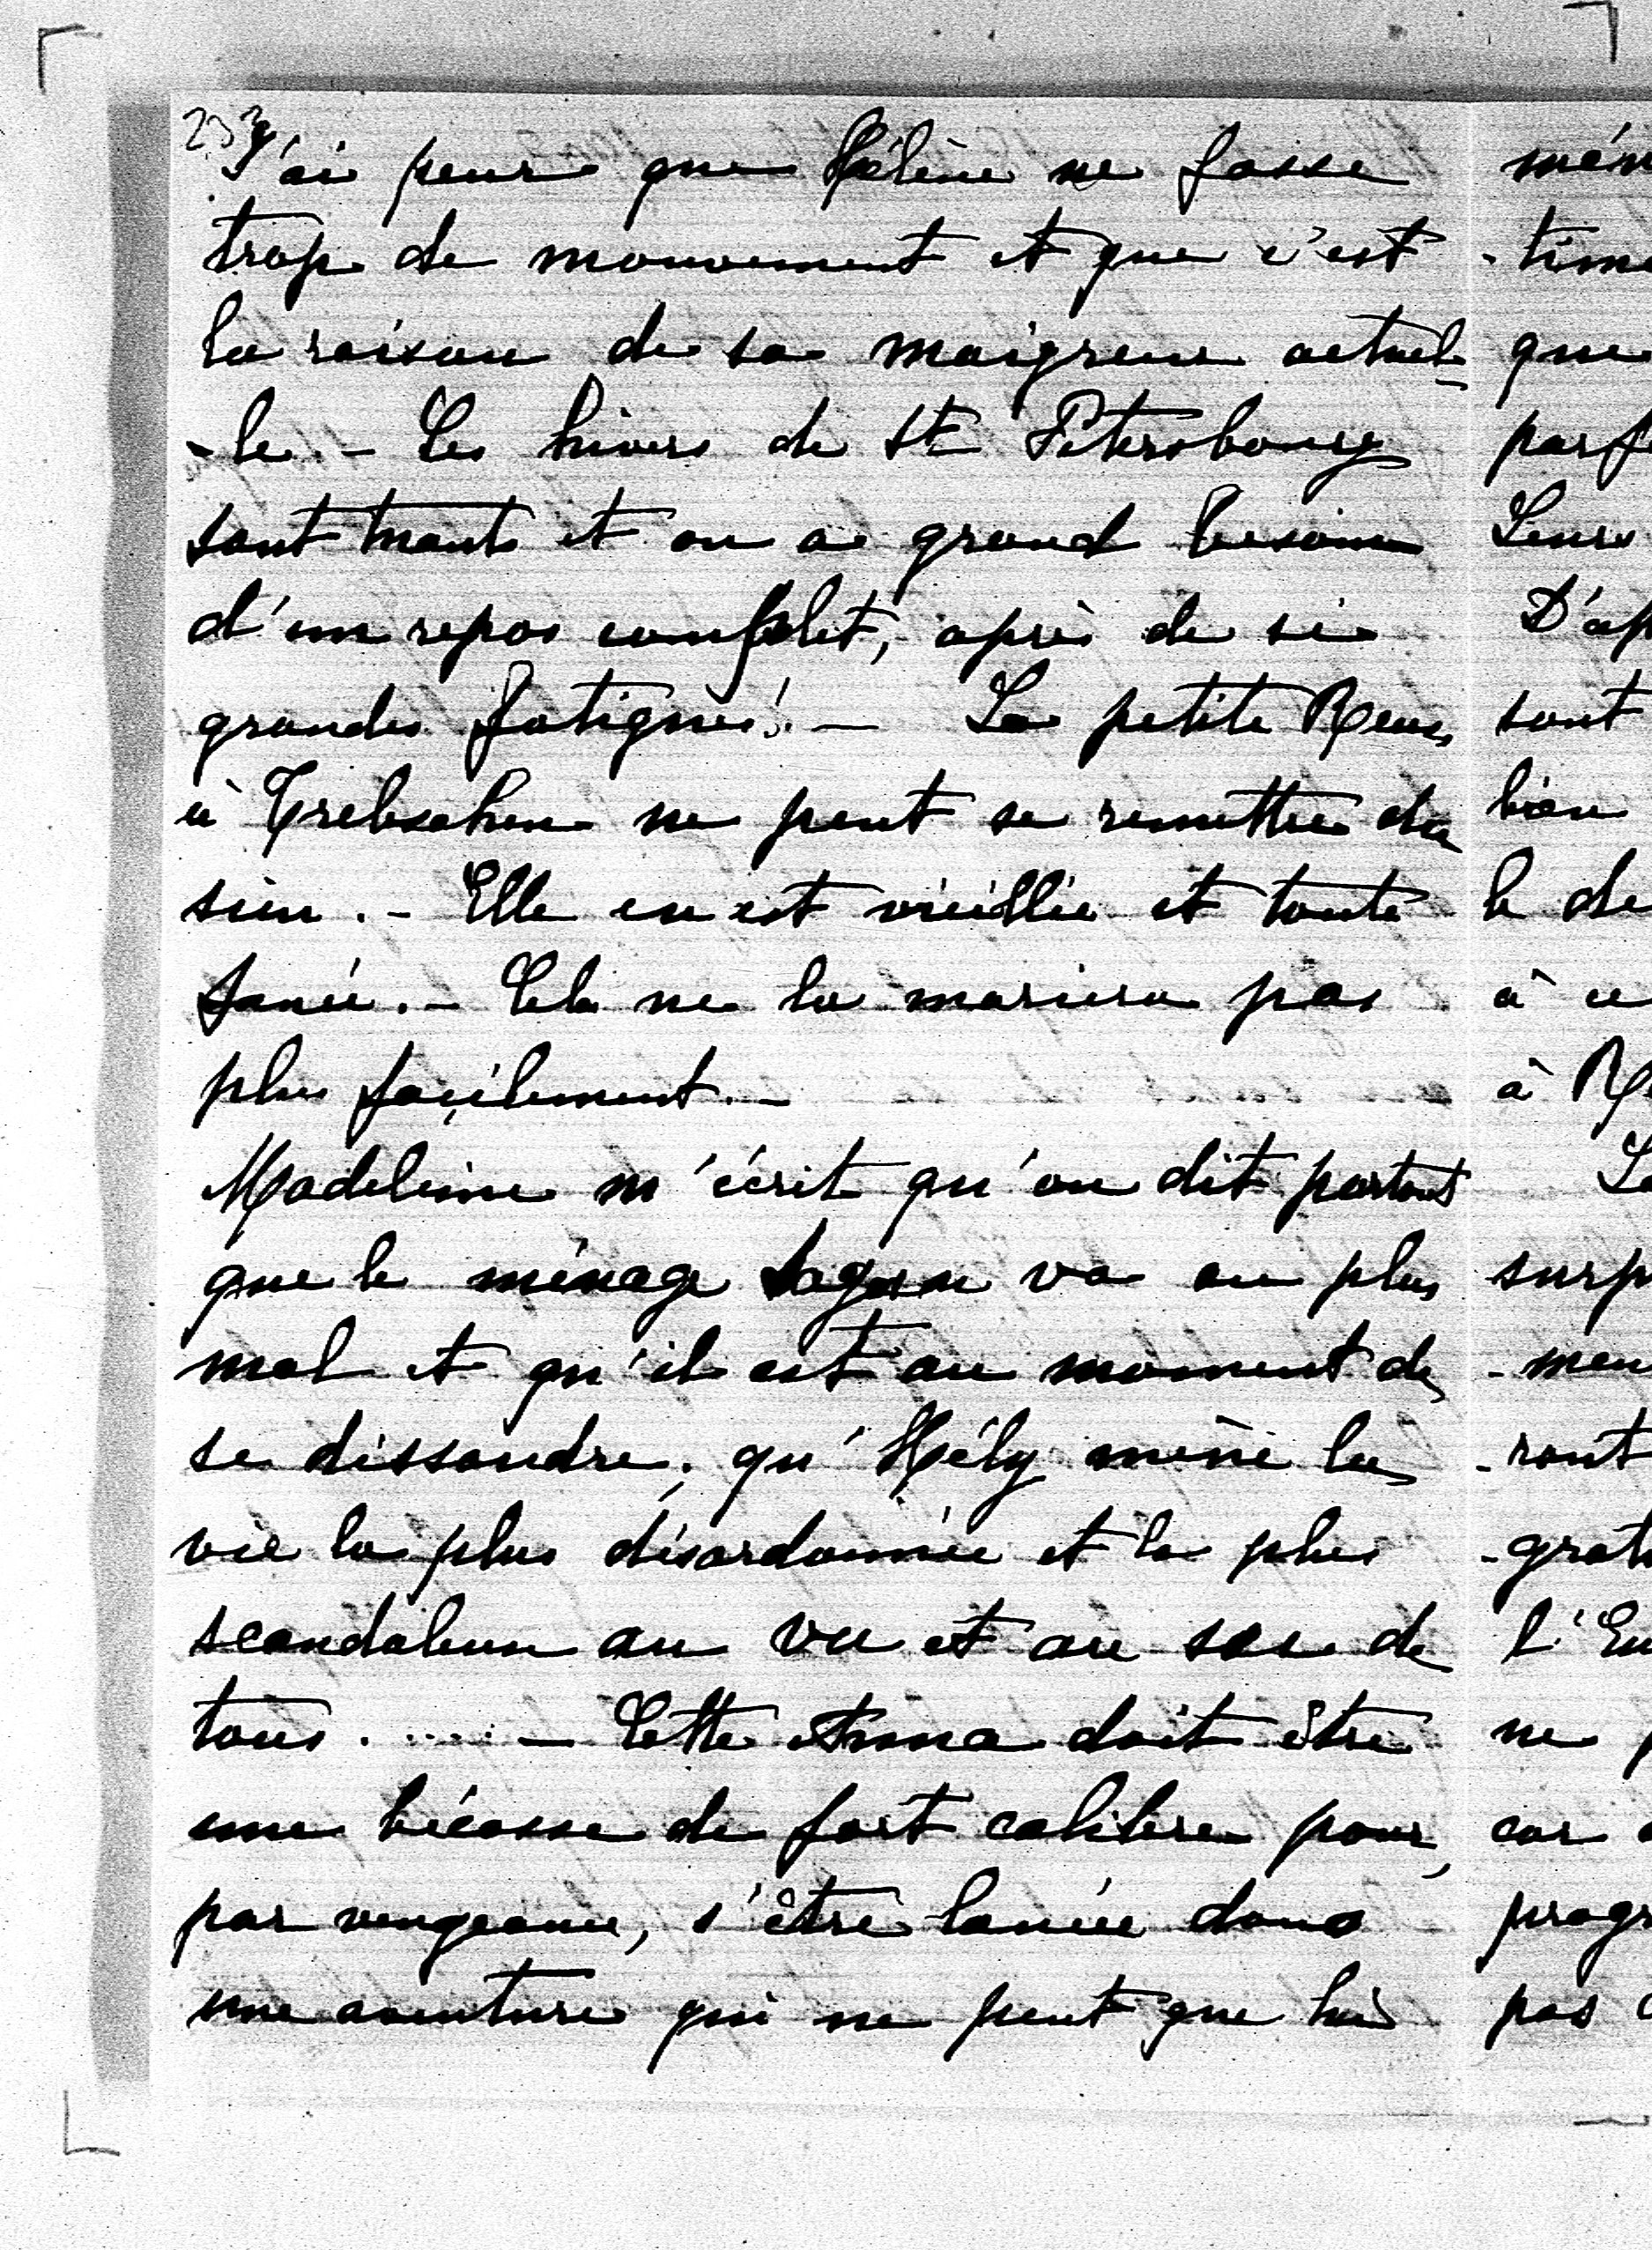 233
J'ai peur que Hélène ne fasse
trop de mouvement et que c'est
la raison de sa maigreur actuel-
-le. - Les hivers de St Pétersbourg
sont tuants et on a grand besoin
d'un repos complet, après de si
grandes fatigues! - La petite Reuss
à Trebschen ne peut se remettre du
sien. - Elle en est vieillie et toute
fanée. - Cela ne la mariera pas
plus facilement. -
Madeleine m'écrit qu'on dit partout
que le ménage Sagan va au plus
mal et qu'il est au moment de
se dissoudre; qu'Hély mène la
vie la plus désordonnée et la plus
scandaleuse au vu et au su de
tous..... - Cette Anna doit être
une bécasse de fort calibre pour,
par vengeance, s'être lancée dans
une aventure qui ne peut que lui
- time
que
Leurs
sont
bien
le de
à ce
à
- ront
ne
car
pas